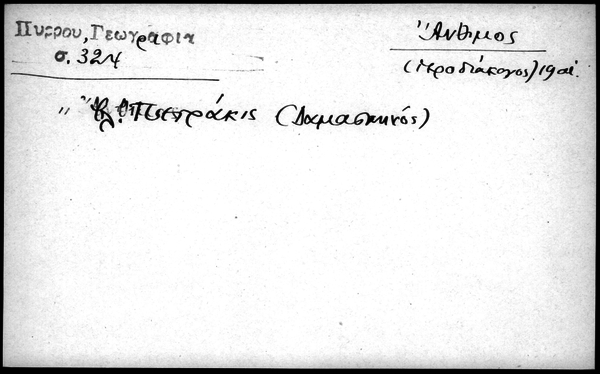 Πυρρου, Γεωγραφια
σ. 324
Ἄνθιμος
(Ἱεροδιάκονος) 19 αἰ.
„ Πετράκις (Δαμασκηνός)